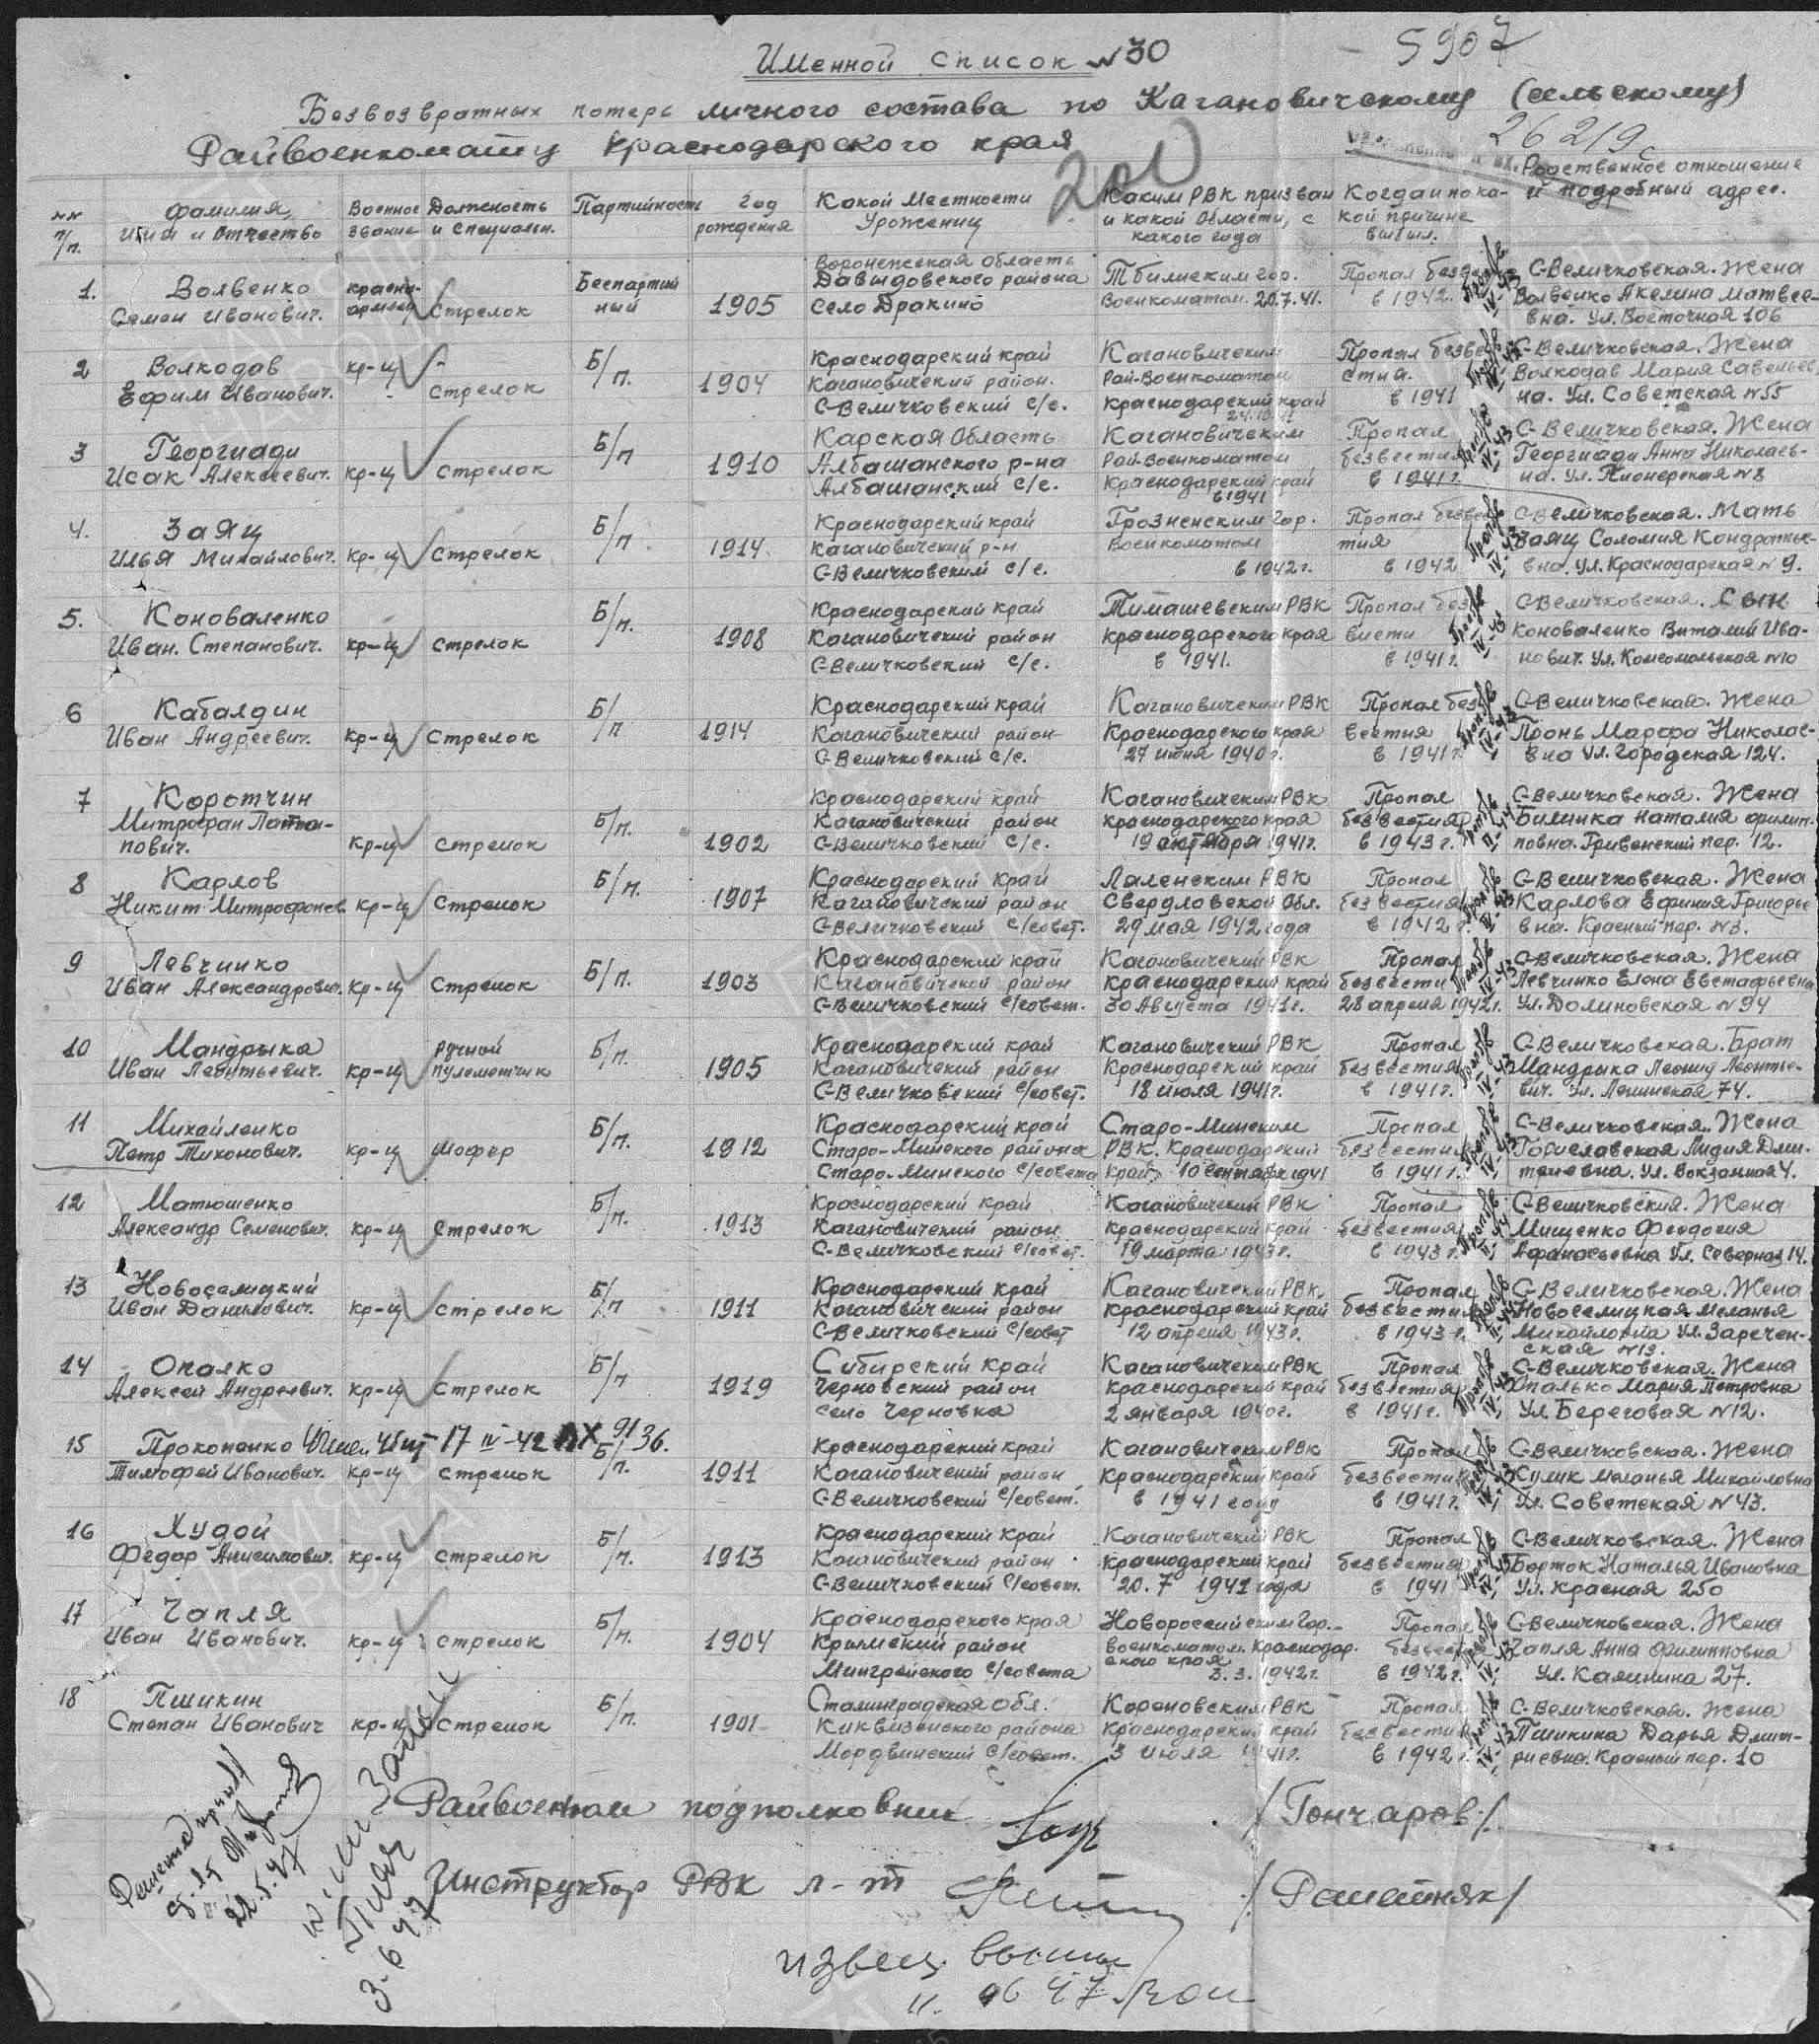 Именной список №30
5907
Безвозвратных потерь личного состава по Кагановичскому (сельскому)
Райвоенкомату Краснодарского края
200
26219с
№№ п/п.
Фамилия, Имя и Отчество
Военное звание
Должность и специальн.
Партийность
Год рождения
Какой Местности Уроженец
Каким РВК призван и какой Области, с какого года
Когда и по какой причине выбыл.
Родственное отношение и подробный адрес.
1. Волвенко Семен Иванович. красноармеец Стрелок Беспартийный 1905 Воронежская область Давыдовского района село Дракино Тбилиским гор. Военкоматом. 20.7.41. Пропал безвес в 1942. Проп бв IV-43 С-Величковская. Жена Волвенко Акелина Матвеевна. Ул. Восточная 106
2 Волкодав Ефим Иванович. кр-ц - Стрелок Б/п. 1904 Краснодарский край Кагановичский район. С-Величковский с/с. Кагановичским Рай-Военкоматом Краснодарский край 24.10.41 Пропал безвестия. в 1941 Проп бв С-Величковская. Жена Волкодав Мария Савельевна. Ул. Советская №55
3 Георгиади Исак Алексеевич. кр-ц Стрелок Б/п 1910 Карская Область Албашанского р-на Албашанский с/с. Кагановичским Рай-Военкоматом Краснодарский край в 1941 Пропал безвестия в 1941г. Проп бв IV-43 С-Величковская. Жена Георгиади Анна Николаевна. ул. Пионерская №8
4. Заяц Илья Михайлович. кр-ц Стрелок Б/п 1914 Краснодарский край Кагановичский р-н С-Величковский с/с. Грозненским Гор. Военкоматом в 1942г. Пропал безвестия в 1942 Проп бв IV-43 С-Величковская. Мать Заяц Соломия Кондратьевна. ул. Краснодарская №9.
5. Коноваленко Иван. Степанович. кр-ц Стрелок Б/п. 1908 Краснодарский край Кагановичский район С-Величковский с/с. Тимашевским РВК Краснодарского края в 1941. Пропал безвисти в 1941г. Проп бв IV-43 С-Величковская. Сын Коноваленко Виталий Иванович. ул. Комсомольская №10
6 Кабалдин Иван Андреевич. кр-ц Стрелок Б/п 1914 Краснодарский край Кагановичский район С-Величковский с/с. Кагановичским РВК Краснодарского края 27 июня 1940г. Пропал безвестия в 1941г. Проп бв С-Величковская. Жена Пронь Марфа Николаевна ул. Городская 124.
7 Коротчин Митрофан кр-ц стрелок Б/п. 1902 Краснодарский край Кагановичский район С-Величковский с/с. Кагановичским РВК Краснодарского края 19 октября 1941г. Пропал безвестия в 1943г. Проп бв II-44 С-Величковская. Жена Билинка Наталия Филипповна. Гривенский пер. 12.
8 Карлов Никит Митрофонов. кр-ц Стрелок Б/п. 1907 Краснодарский край Кагановичский район С-Величковский с/совет. Лаленским РВК Свердловской Обл. 29 мая 1942 года Пропал безвестия в 1942г. Проп бв С-Величковская. Жена Карлова Ефимия Григорьевна. Красный пер. №3.
9 Левчинко Иван Александрович. кр-ц Стрелок Б/п. 1903 Краснодарский край Кагановичский район С-Величковский с/совет. Кагановичский РВК Краснодарский край 30 Августа 1941г. Пропал безвести 28 апреля 1942г. Проп бв IV-43 С-Величковская. Жена Левчинко Елена Евстафьевна ул. Долиновская №94
10 Мандрыка Иван Леонтьевич. кр-ц ручной пулеметчик Б/п. 1905 Краснодарский край Кагановичский район С-Величковский с/совет. Кагановичский РВК Краснодарский край 18 июля 1941г. Пропал безвестия в 1941г. Проп бв IV-43 С-Величковская. Брат Мандрыка Леонид Леонтьевич. ул. Ленинская 74.
11 Михайленко Петр Тихонович. кр-ц Шофер Б/п. 1912 Краснодарский край Старо-Минского района Старо-Минского с/совета Старо-Минским РВК. Краснодарский край 10 сентября 1941 Пропал безвестия в 1941г. Проп бв IV-43 С-Величковская. Жена Гориславская Лидия Дмитриевна. ул. Вокзальная 4.
12 Матюшенко Александр Семенович. кр-ц Стрелок Б/п. 1913 Краснодарский край Кагановичский район С-Величковский с/совет. Кагановичский РВК Краснодарский край 19 марта 1943г. Пропал безвестия в 1943г. Проп бв II-44 С-Величковския. Жена Мищенко Феодосия Афанасьевна ул. Северная 14.
13 Новоселицкий Иван Данилович. кр-ц Стрелок Б/п 1911 Краснодарский край Кагановичский район С-Величковский с/совет Кагановичский РВК Краснодарский край 12 апреля 1943г. Пропал безвестия в 1943г. Проп бв С-Величковская. Жена Новоселицкая Меланья Михайловна ул. Зареченская №13.
14 Опалко Алексей Андреевич. кр-ц Стрелок Б/п 1919 Сибирский край Черновский район село Черновка Кагановичским РВК Краснодарский край 2 января 1940г. Пропал безвестия в 1941г. Проп бв IV-43 С-Величковская. Жена Опалько Мария Петровна ул. Береговая №12.
15 Прокопенко 17 IV-42 9136. Тимофей Иванович. кр-ц стрелок Б/п. 1911 Краснодарский край Кагановичский район С-Величковский с/совет. Кагановичским РВК Краснодарский край в 1941 году Пропал безвестия в 1941г. Проп бв С-Величковская. Жена Кулик Меланья Михайловна ул. Советская №43.
16 Худой Федор Анисимович. кр-ц стрелок Б/п. 1913 Краснодарский край Кагановичский район С-Величковский с/совет. Кагановичский РВК Краснодарский край 20. 7 1941 года Пропал безвестия в 1941 Проп бв С-Величковская. Жена Борток Наталья Ивановна ул. Красная 250
17 Чапля Иван Иванович. кр-ц стрелок Б/п. 1904 Краснодарского края Крымский район Мингрейского с/совета Новороссийским Гор. военкоматом. Краснодарского края 3.3.1942г. Пропал безвести в 1942г. Проп бв С-Величковская. Жена Чапля Анна Филипповна ул. Калинина 27.
18 Пшикин Степан Иванович кр-ц Стрелок Б/п. 1901 Сталинградская обл. Киквизенского района Мордвинский с/совет. Кореновским РВК Краснодарский край 3 июля 1941г. Пропал безвестия в 1942г. Проп бв С-Величковская. Жена Пшикина Дарья Дмитриевна. Красный пер. 10
Райвоенком подполковник /Гончаров/
Инструктор РВК л-т /Решетняк/
22.5.47
3.6.47
извещ. высл
11. 06 47